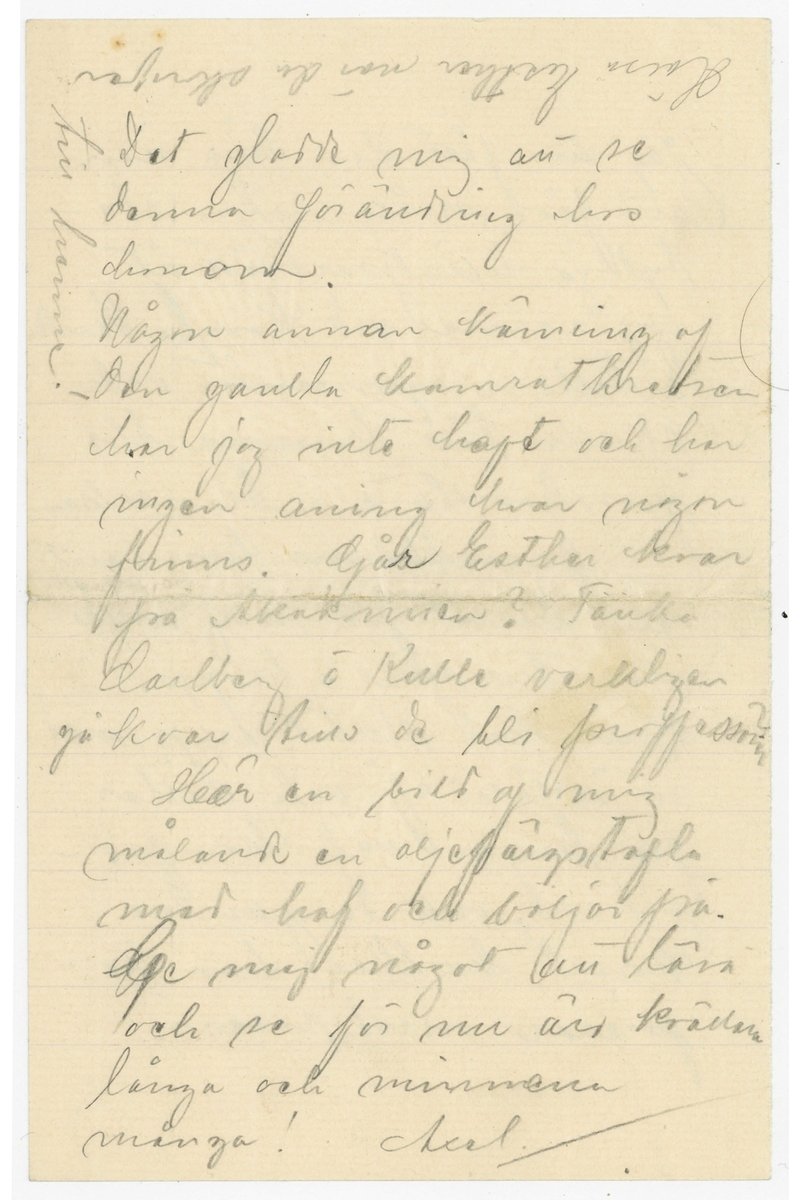 Det gladde mig att se
denna förändring hos
honom.
Någon annan känning af
den gamla kamratkretsen
har jag inte haft och har
ingen aning hvar någon
finns. Går Esther kvar
på Akademien? Tänka
Carlberg o Kulle verkligen
gå kvar tills de bli professorer?
Här en bild af mig
målande en oljefärgstafla
med haf och böljor på.
Ge mig något att läsa
och se för nu äro kvällarna
långa och minnena
många! Axel.
Hälsa Esther när du skrifver
till henne.